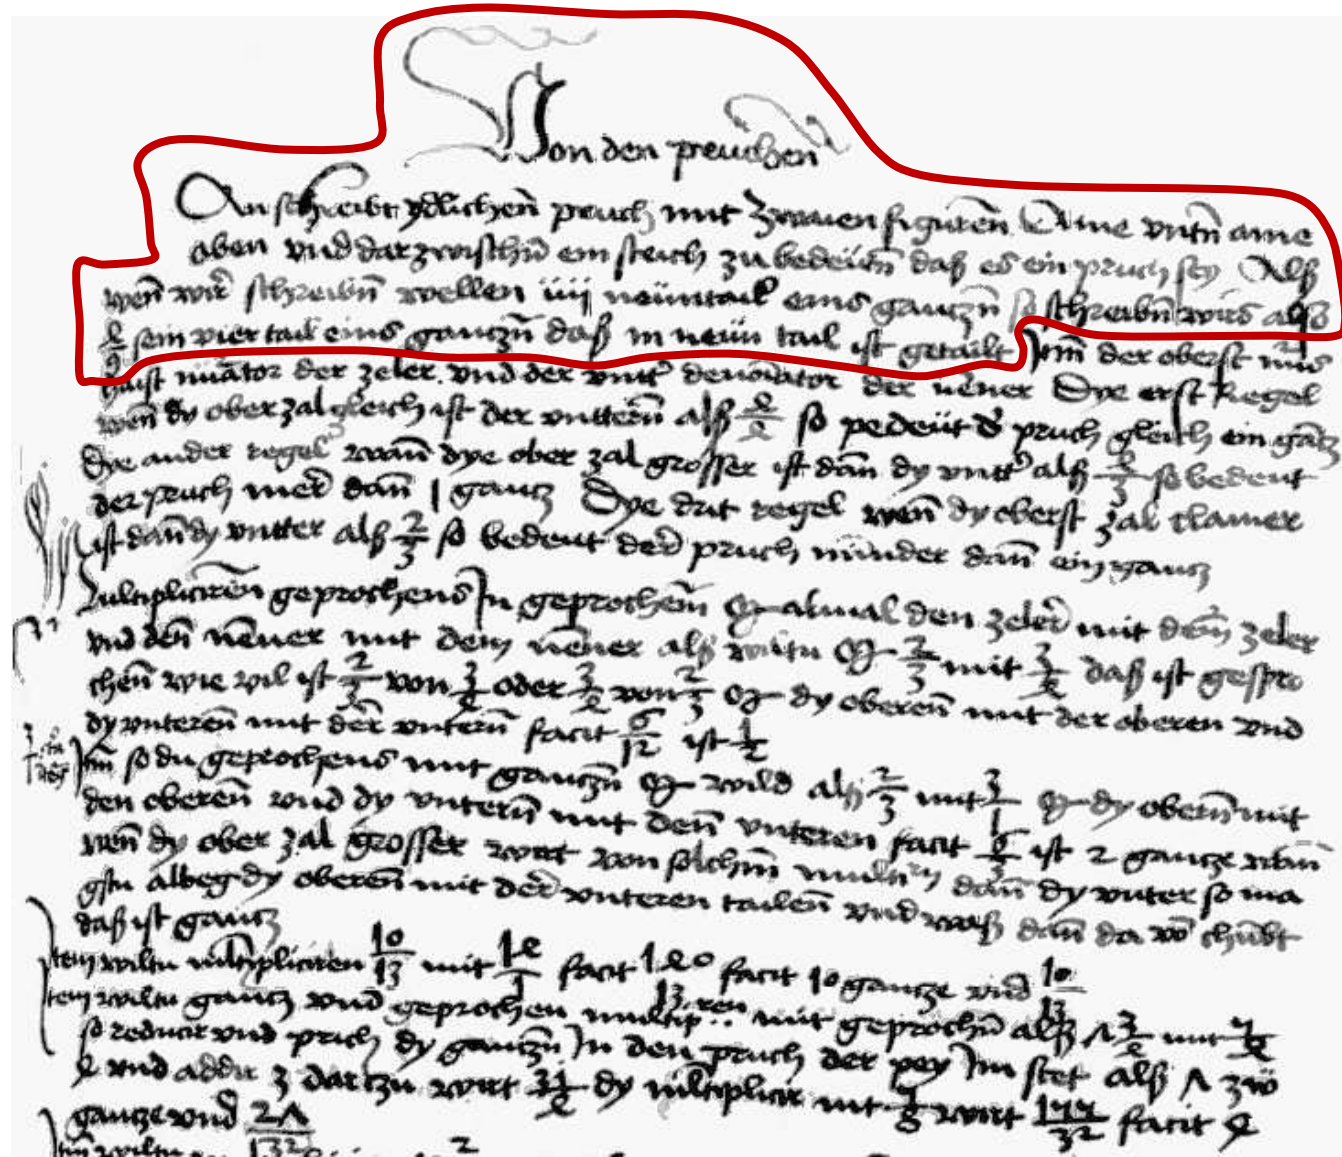 Von den pruchen
Man schreibt ydlichen pruch mit zwaien figuren Aine untn aine
oben vnd darzwischn ein strich zu bedeutn daß es ein pruch sey Alß
wen wir schreibn wellen iiii neuntail eins gantzn so schreibn wirs alßo
4/9 sein vier tail eins gantzn daß in neun tail ist getailt Itm der oberst
haist der zeler vnd der vntter der nenner Dye erst Regel
wen dy ober zal gleich ist der vntteren alß 4/4 so pedeut pruch gleich ein gantz
Dye ander regel wann dye ober zal grosser ist dan dy vntter alß so bedeut
der pruch mer dan 1 gantz Dye drit regel wen dy oberst zal clainer
ist dan dy vntter alß 2/3 so bedeut der pruch minder dan ein gantz
Multipliciren geprochens In geprochem almal den zeler mit dem zeler
vnd den nenner mit dem nenner alß wiltu 2/3 mit 3/4 daß ist gespro
chen wie vil ist 2/3 von 3/4 oder 3/4 von 2/3 dy oberen mit der oberen vnd
dy vnteren mit der vntern facit 6/12 ist 1/2
Itm so du geprochens mit gantzn wild alß 2/3 mit 3/1 dy obern mit
den oberen vnd dy vntern mit den vnteren facit 6/3 ist 2 gantze wan
wen dy ober zal grosser wirt von solchem dan dy vnter so ma
gstu albeg dy oberen mit der vnteren tailen vnd waß dan da von chumbt
daß ist gantz
Item wiltu multipliciren 10/13 mit 14/1 facit 140/13 facit 10 gantze vnd 10/13
Item wiltu gantz vnd geprochen mit geprochn alß 7 3/4 mit 7/8
so reducir vnd prich dy gantzn In den pruch der pey Im stet alß 7 zw
4 vnd addir 3 dartzu wirt 31/4 dy multiplicir mit 7/8 wirt 217/32 facit
gantze vnd